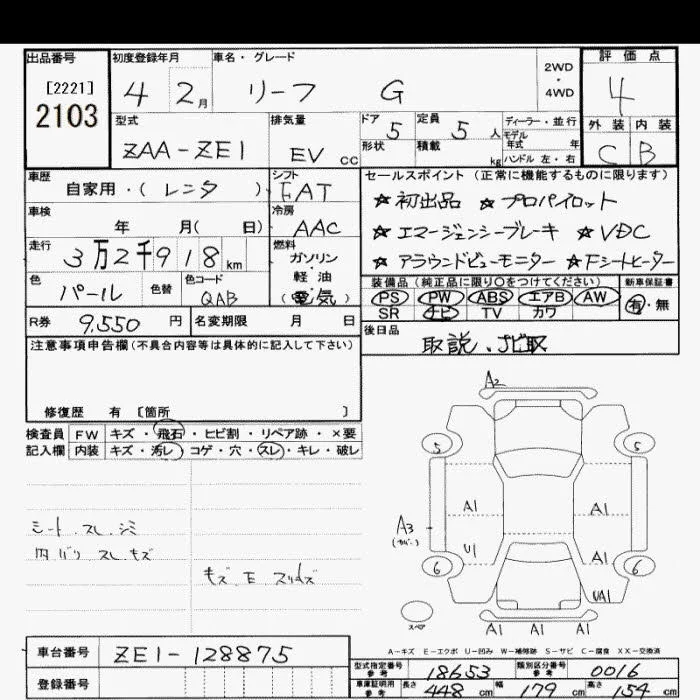 出品番号 初度登録年月 車名・グレード 2WD・4WD 評価点
[2221]
2103 4 2月 リーフ G 4
型式 排気量 ドア 5 定員 5人 ディーラー・並行 外装 内装
ZAA-ZE1 EV cc 形状 積載 kg モデル年式 年 C B
ハンドル 左・右
車歴 シフト セールスポイント (正常に機能するものに限ります)
自家用・( レンタ ) FAT ☆初出品 ☆プロパイロット
車検 冷房
年 月( 日) AAC ☆エマージェンシーブレーキ ☆VDC
走行 燃料
3万2千918km ガソリン・軽油 ☆アラウンドビューモニター ☆Fシートヒーター
色 色替 色コード (電気) 装備品 (純正品に限り○をつけてください) 新車保証書
パール QAB PS PW ABS エアB AW 有・無
SR ナビ TV カワ
R券 9,550円 名変期限 月 日 後日品
注意事項申告欄(不具合内容等は具体的に記入して下さい) 取説、
修復歴 有 [箇所 ]
検査員 FW キズ・飛石・ヒビ割・リペア跡・×要
記入欄 内装 キズ・汚レ・コゲ・穴・スレ・キレ・破レ
A2
5 5
A1 A1
A3
U1 A1
6 6
UA1
シート スレ シミ
内バリ スレ キズ
キズ E
スペア A1 A1 A1
A-キズ E-エクボ U-凹み W-補修跡 S-サビ C-腐食 XX-交換済
車台番号 ZE1-128875
型式指定番号 参考 18653 類別区分番号 参考 0016
登録番号
車庫証明用 参考 長さ 448cm 幅 179cm 高さ 154cm